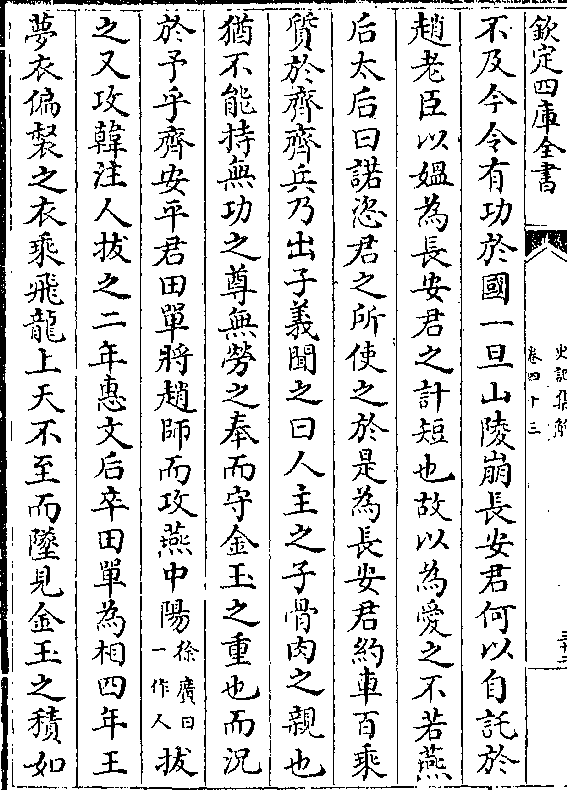 欽定四庫全書
史記集解
卷四十三
不及今令有功於國一旦山陵崩長安君何以自託於
趙老臣以媪為長安君之計短也故以為愛之不若燕
后太后曰諾恣君之所使之於是為長安君約車百乘
質於齊齊兵乃出子義聞之曰人主之子骨肉之親也
猶不能持無功之尊無勞之奉而守金玉之重也而況
於予乎齊安平君田單將趙師而攻燕中陽徐廣曰一作人拔
之又攻韓注人拔之二年惠文后卒田單為相四年王
夢衣偏裻之衣乘飛龍上天不至而墜見金玉之積如